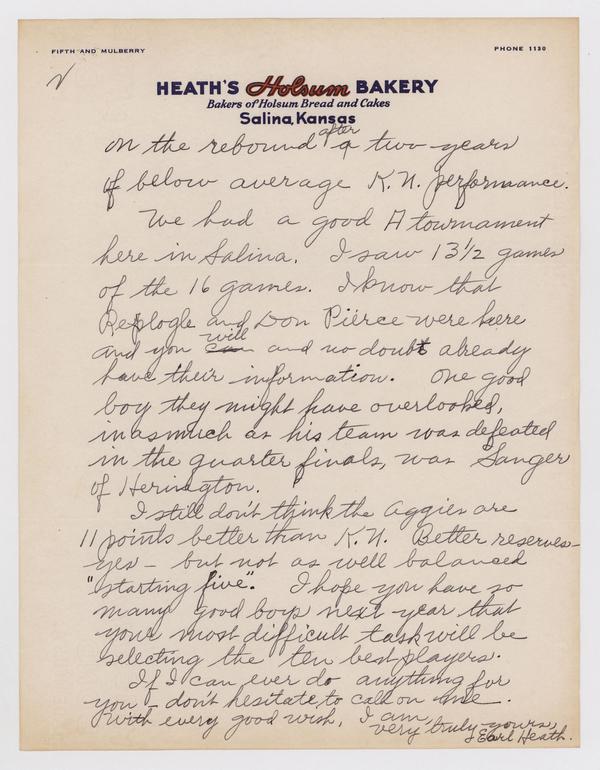 FIFTH AND MULBERRY
PHONE 1130
HEATH'S Holsum BAKERY
Bakers of Holsum Bread and Cakes
Salina, Kansas
on the rebound after a two years
of below average K.U. performance.
We had a good A tournament
here in Salina. I saw 13 1/2 games
of the 16 games. I know that
Replogle and Don Pierce were here
and you can will and no doubt already
have their information. One good
boy they might have overlooked,
inasmuch as his team was defeated
in the quarter finals, was Sanger
of Herington.
I still don't think the Aggies are
11 points better than K.U. Better reserves—
yes — but not as well balanced
"starting five". I hope you have so
many good boys next year that
your most difficult task will be
selecting the ten best players.
If I can ever do anything for
you — don't hesitate to call on me.
With every good wish, I am
very truly yours,
Earl Heath.